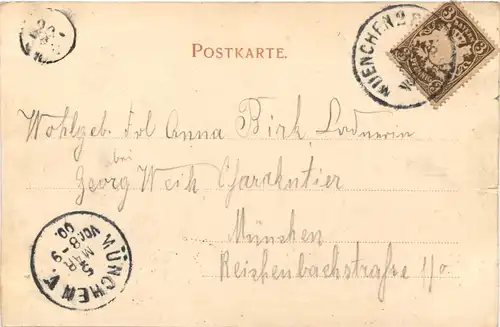 POSTKARTE.
MUENCHEN 2
3
3
Wohlgeb. Frl Anna Birk, Ladnerin
bei
Georg Weik, Charakutier
München
Reichenbachstraße 1/0
MÜNCHEN V.
5
MAR
Vor. 8-9
00.